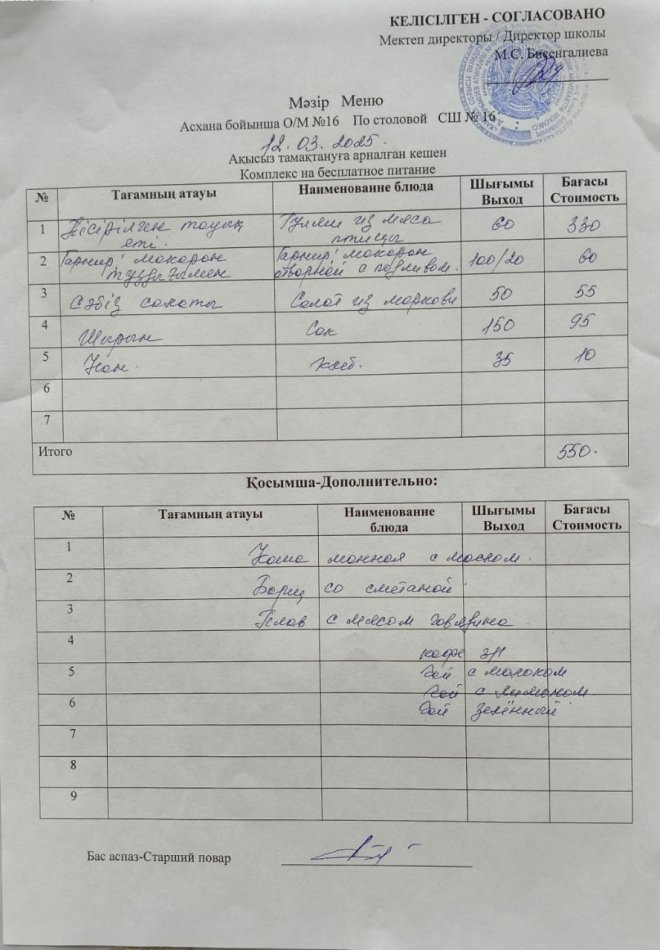 КЕЛІСІЛГЕН - СОГЛАСОВАНО
Мектеп директоры / Директор школы
М.С. Бисенгалиева
Мәзір Меню
Асхана бойынша О/М №16 По столовой СШ № 16
12.03.2025.
Ақысыз тамақтануға арналған кешен
Комплекс на бесплатное питание
№ Тағамның атауы Наименованне блюда Шығымы Выход Бағасы Стоимость
1 Пісірілген тауық еті. Гуляш из мяса птицы 60 330
2 Гарнир: макарон тұздығымен Гарнир: макарон отворной с подливом. 100/20 60
3 Сәбіз салаты Салат из моркови 50 55
4 Шырын Сок 150 95
5 Нан. хлеб. 35 10
6
7
Итого 550.
Қосымша-Дополнительно:
№ Тағамның атауы Наименованне блюда Шығымы Выход Бағасы Стоимость
1 Каша манная с маслом.
2 Борщ со сметаной.
3 Плов с мясом говядина.
4 кофе 3/1
5 чай с молоком
чай с лимоном
6 чай зелённый
7
8
9
Бас аспаз-Старший повар